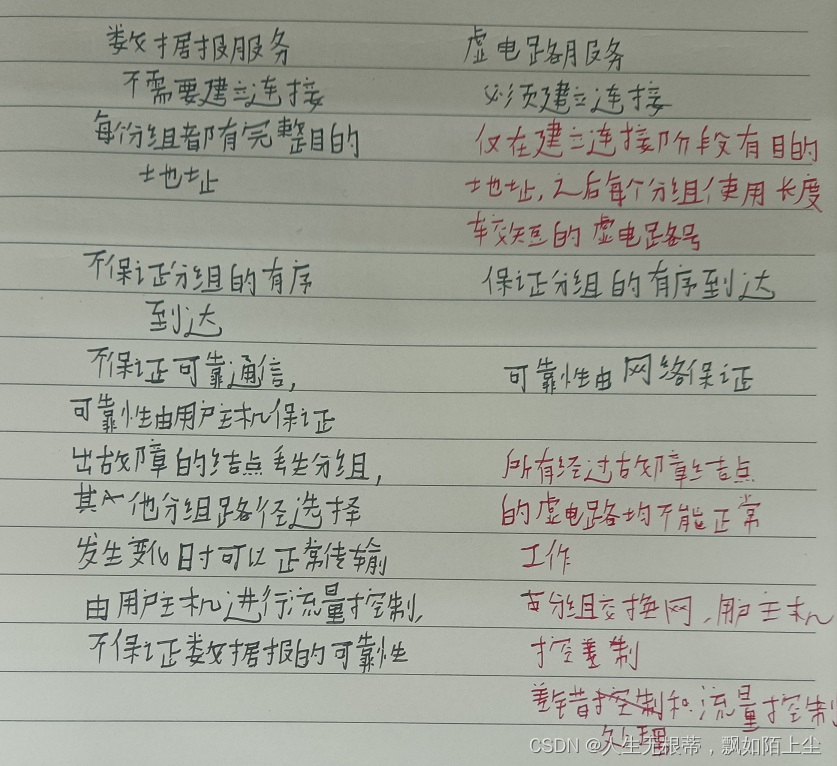 数据报服务 虚电路服务
不需要建立连接 必须建立连接
每份组都有完整目的 仅在建立连接阶段有目的
地址 地址,之后每个分组使用长度
较短的虚电路号
不保证分组的有序 保证分组的有序到达
到达
不保证可靠通信, 可靠性由网络保证
可靠性由用户主机保证
出故障的结点丢失分组, 所有经过故障结点
其他分组路径选择 的虚电路均不能正常
发生变化时可以正常传输 工作
由用户主机进行流量控制, 分组交换网,用户主机
不保证数据报的可靠性 控差制
差错控制和流量控制
处理
CSDN @人生无根蒂,飘如陌上尘